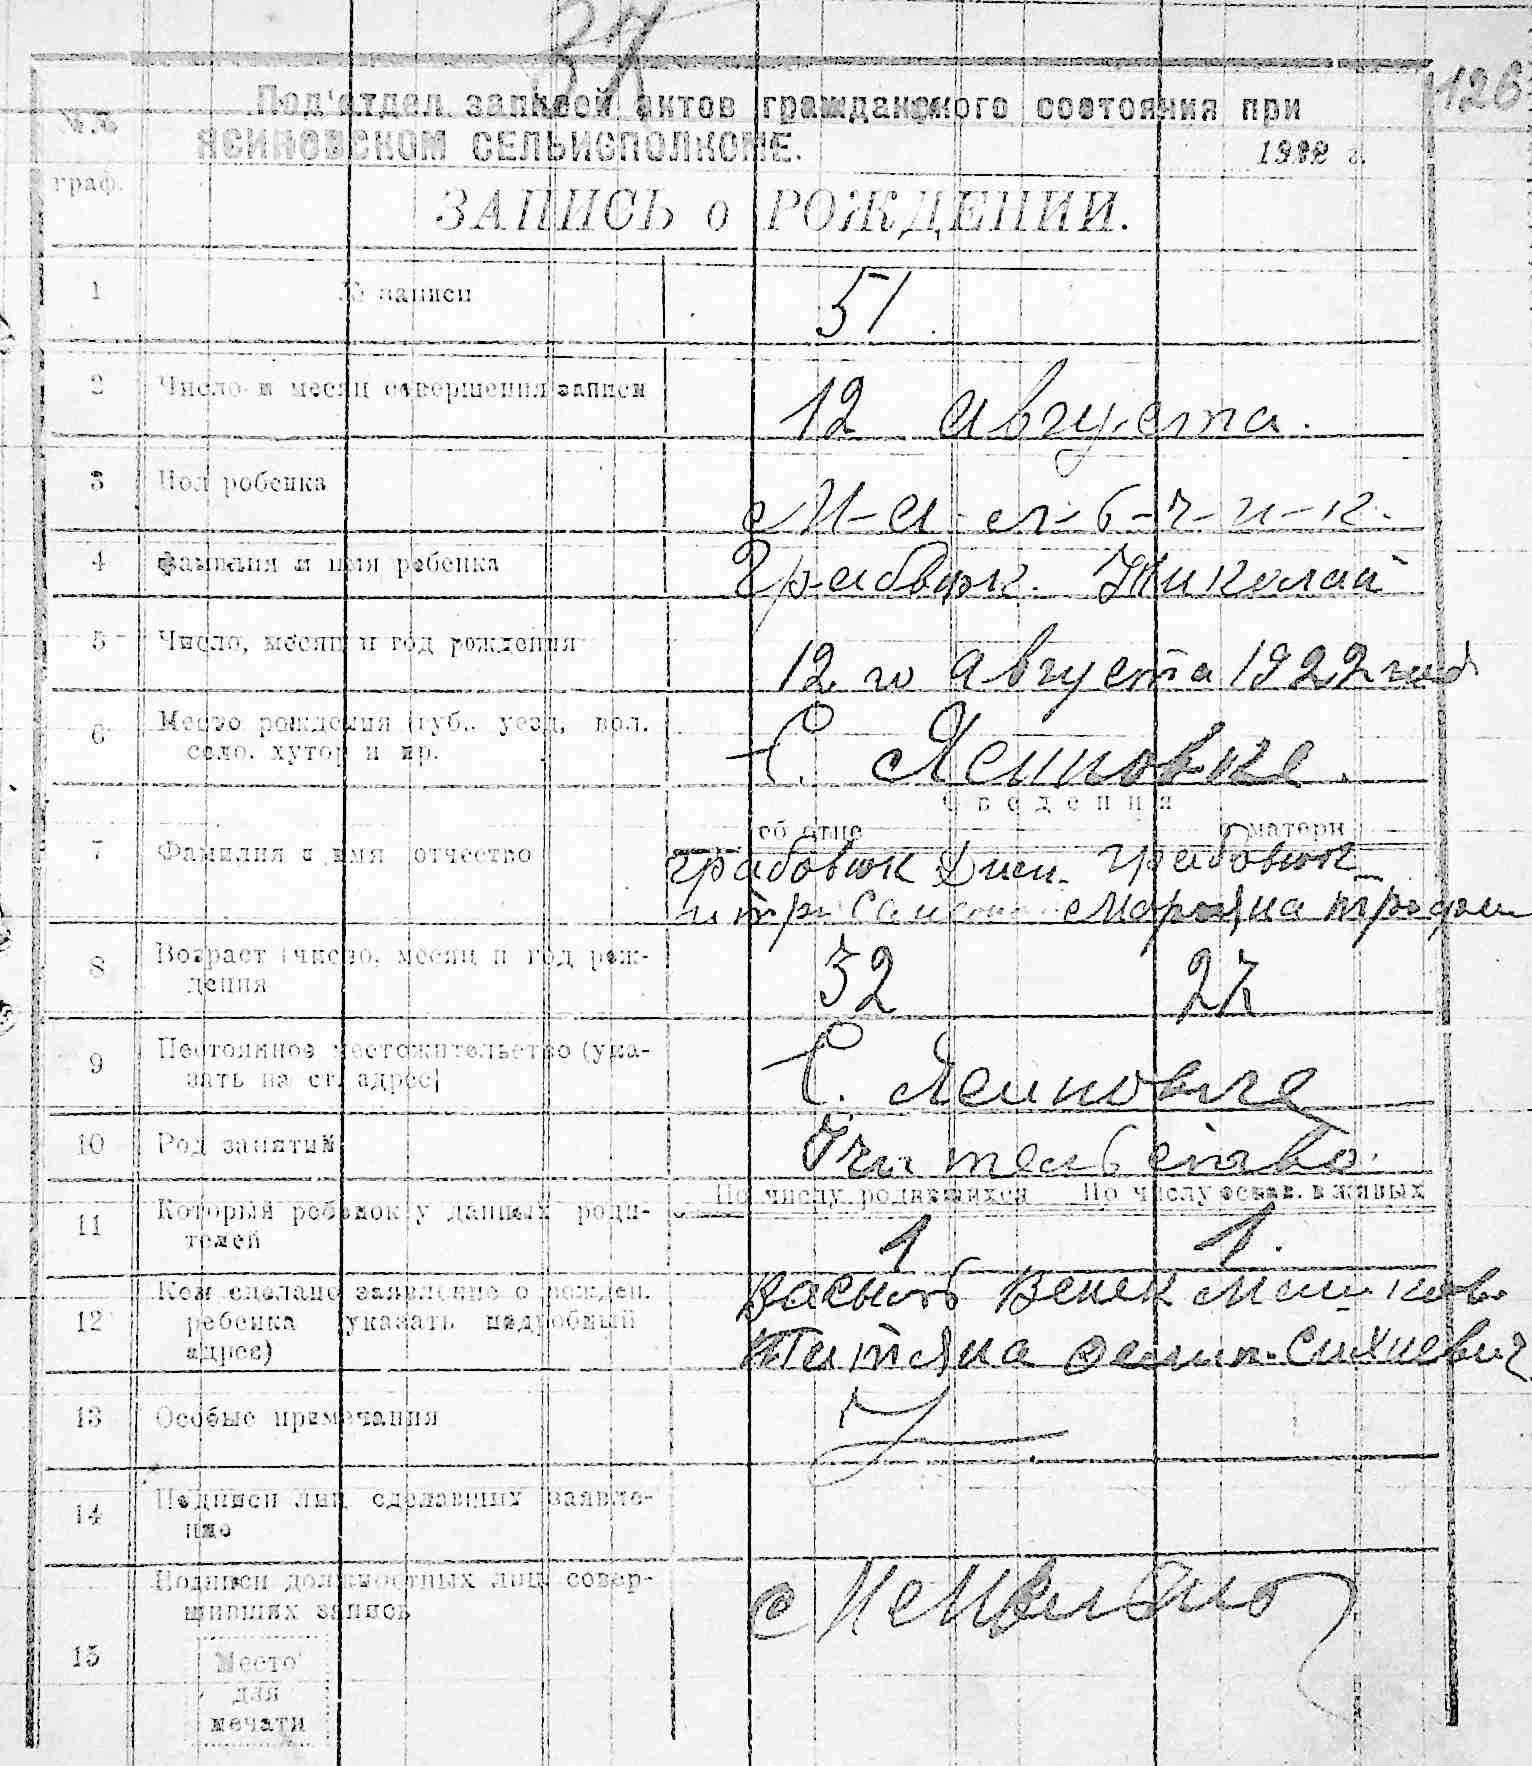 37
126
Под'отдел записей актов гражданского состояния при
ЯСИНОВСКОМ СЕЛЬИСПОЛКОМЕ.
1922 г.
№№ граф.
ЗАПИСЬ о РОЖДЕНИИ.
1 № записи 51
2 Число и месяц совершения записи 12 Августа.
3 Пол ребенка М-а-л-ь-ч-и-к.
4 Фамилия и имя ребенка Николай
5 Число, месяц и год рождения 12 го Августа 1922 год
6 Место рождения (губ., уезд, вол.
село, хутор и пр. С. Ясиновке.
Сведения
об отце о матери
7 Фамилия и имя отчество Грабовюк Грабовюк
8 Возраст (число, месяц и год рож-
дения 32 27
9 Постоянное местожительство (ука-
зать на ст. адрес) С. Ясиновке
10 Род занятий Учительство.
По числу родившихся По числу остав. в живых
11 Который ребенок у данных роди-
телей 1 1.
12 Кем сделано заявление о рожден.
ребенка указать подробный
адрес) Татяна
13 Особые примечания
14 Подписи лиц сделавших заявле-
ние
Подписи должностных лиц совер-
шивших запись
15 Место
для
печати